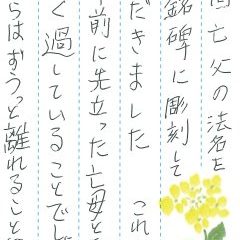 回亡父の法名を
銘碑に彫刻して
だきました　これ
年前に先立った亡母と
く過していることでし
らはずうっと離れること